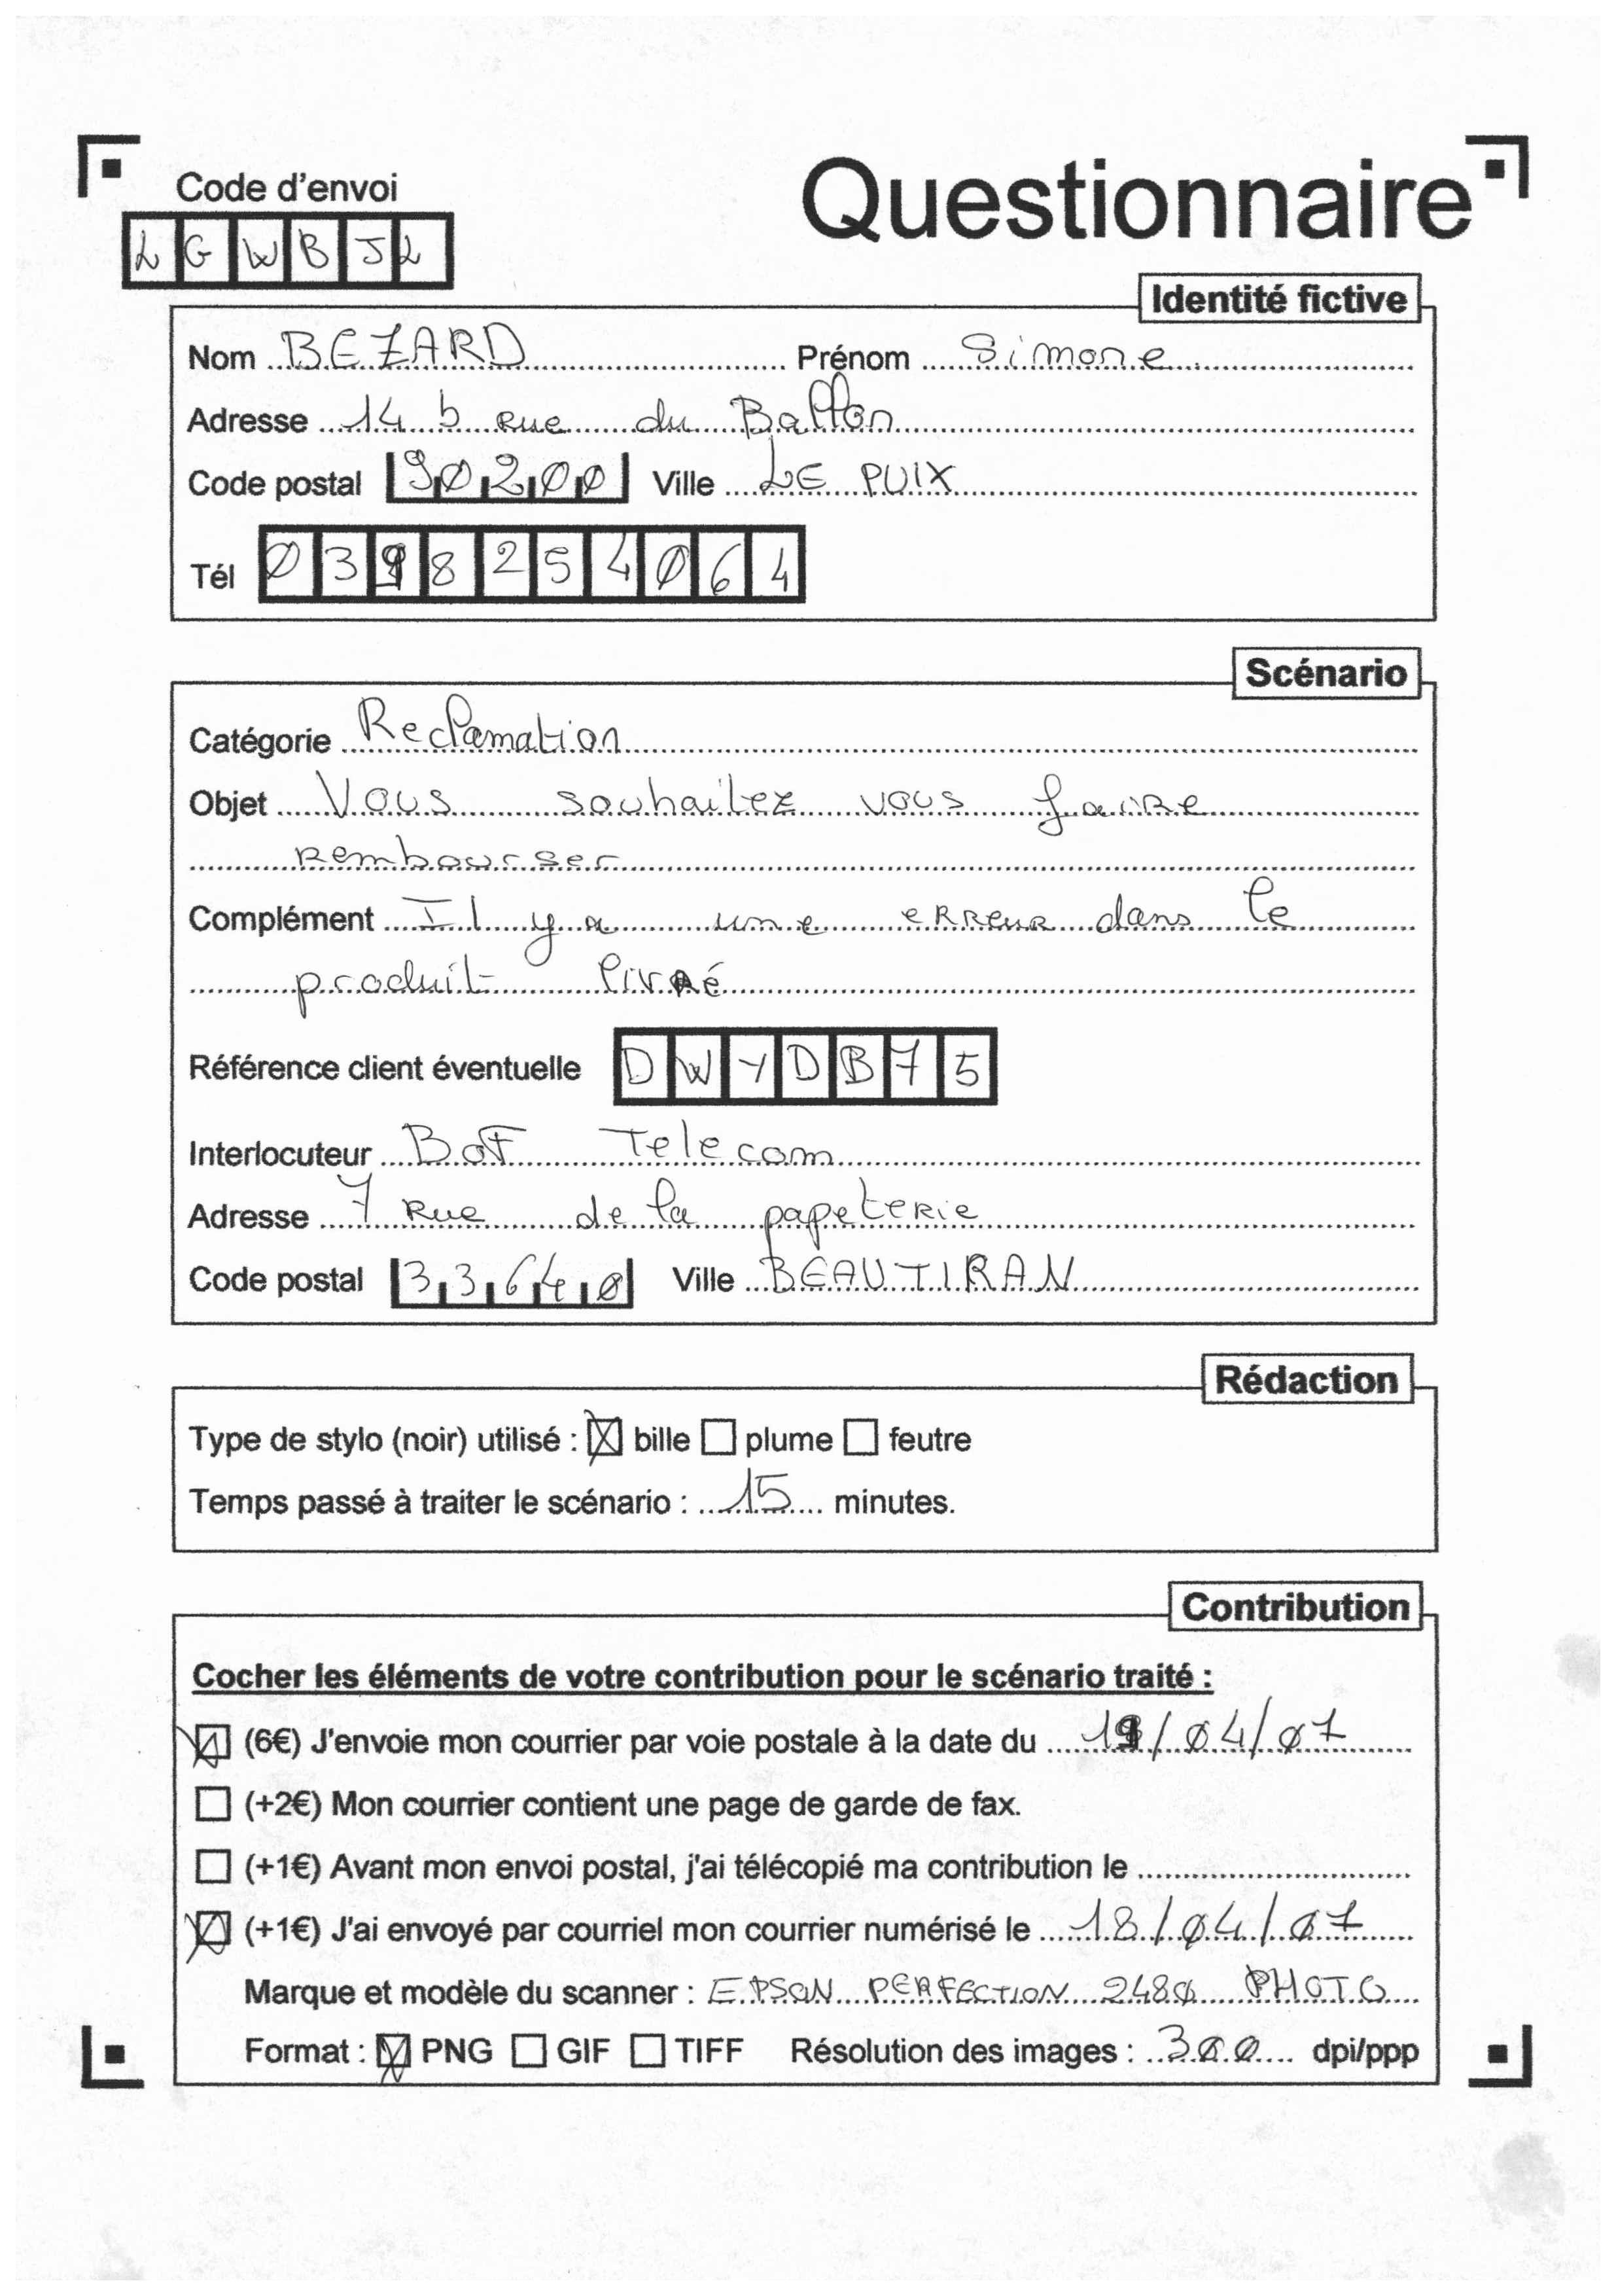 Code d'envoi
Questionnaire
LGWBJL
Identité fictive
Nom BEZARD Prénom Simone
Adresse 14 b Rue du Ballon
Code postal 90200 Ville LE PUIX
Tél 0398254064
Scénario
Catégorie Reclamation
Objet Vous souhaitez vous faire
rembourser
Complément Il y a une erreur dans le
produit livré
Référence client éventuelle DWYDB75
Interlocuteur BoF Telecom
Adresse 7 Rue de la papeterie
Code postal 33640 Ville BEAUTIRAN
Rédaction
Type de stylo (noir) utilisé : ☒ bille ☐ plume ☐ feutre
Temps passé à traiter le scénario : 15 minutes.
Contribution
Cocher les éléments de votre contribution pour le scénario traité :
☒ (6€) J'envoie mon courrier par voie postale à la date du /04/07
☐ (+2€) Mon courrier contient une page de garde de fax.
☐ (+1€) Avant mon envoi postal, j'ai télécopié ma contribution le
☒ (+1€) J'ai envoyé par courriel mon courrier numérisé le 18/04/07
Marque et modèle du scanner : EPSON PERFECTION 2480 PHOTO
Format : ☒ PNG ☐ GIF ☐ TIFF Résolution des images : 300 dpi/ppp